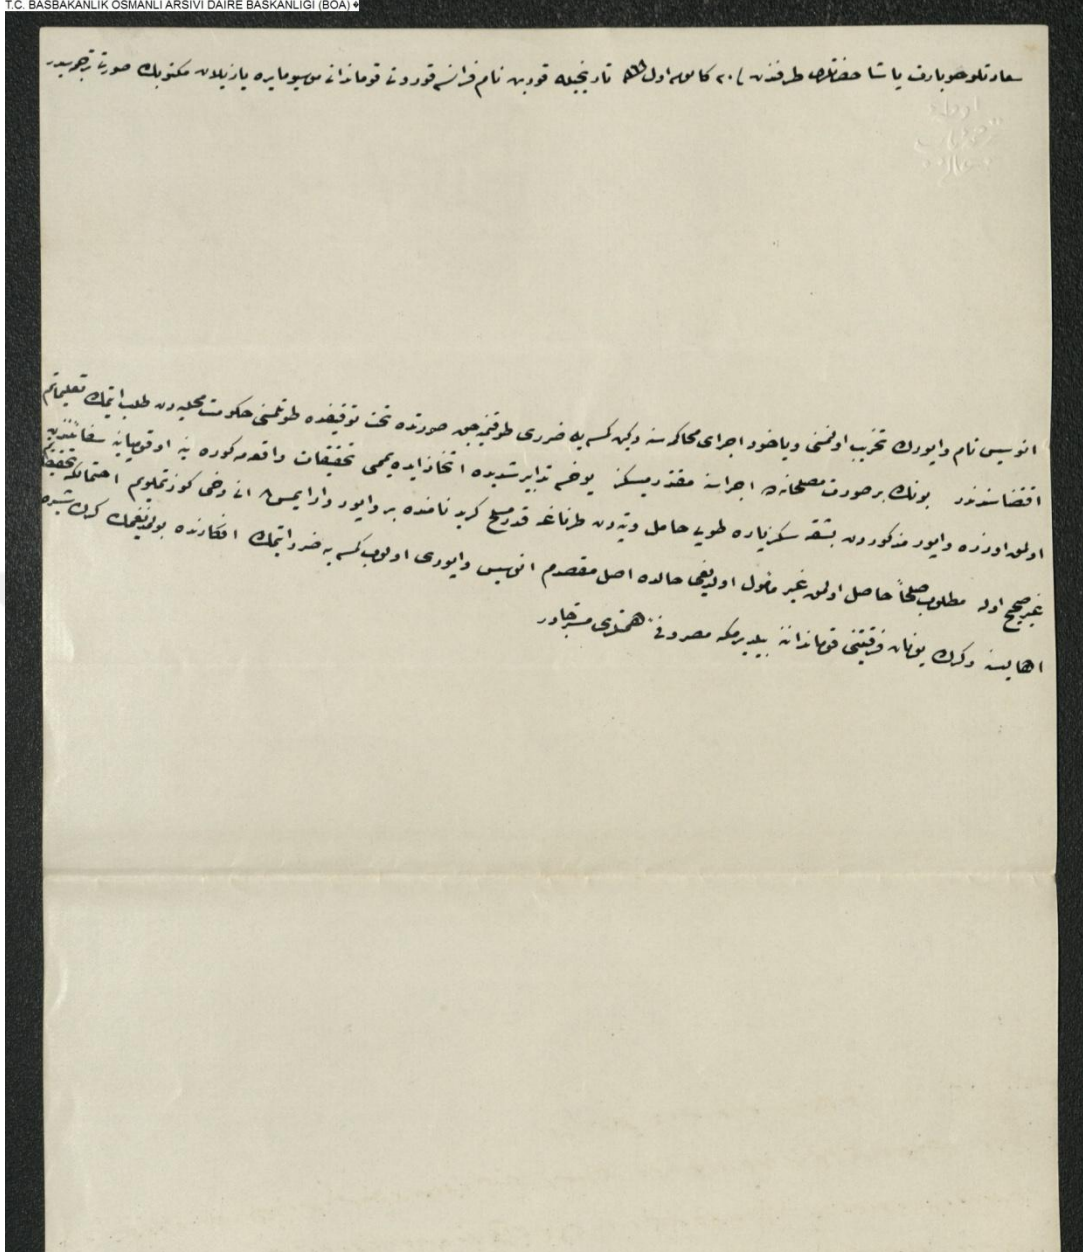 T.C. BASBAKANLIK OSMANLI ARSIVI DAIRE BASKANLIGI (BOA)
سعادتلو هوبارت پاشا حضرتلری طرفندن ٢٠ كانون اول تاريخيله نام فرانسه قوروت قوماندانی موسيو يازيلان مكتوبك صورت ترجمه سيدر
انوسيس نام واپورك تخريب اولنمسنی وياخود اجرای محاكمه سنه دكين كسه يه ضرری طوقنميه جق صورتده تحت توقيفده طوتلمسنی حكومت محليه دن طلب ايتمك تعليماتم
اقتضاسندندر بونك بر صورت مصلحانه ده اجراسنه مقتدرميسكز يوخسه تدابير شديده اتخاذ ايده يممی تحقيقات واقعه مه كوره ينه او قومپانيه سفائنندن
اولمق اوزره واپور مذكوردن بشقه سكز پاره طوپی حامل قدر مسلح كريد نامنده بر واپور وار ايمش انی دخی كوزتمليم احتمالكه
غير صحيح اوله مطلوب صلحاً حاصل اولمق غير مأمول اولديغی حالده اصل مقصدم انوسيس واپوری اولوب كسه يه ضرر ايتمك افكارنده بولنمديغمك كرك شيره
اهاليسنه وكرك يونان فرقتينی قوماندانه بيلديرمكه مصروفی همتلری مسترجادر